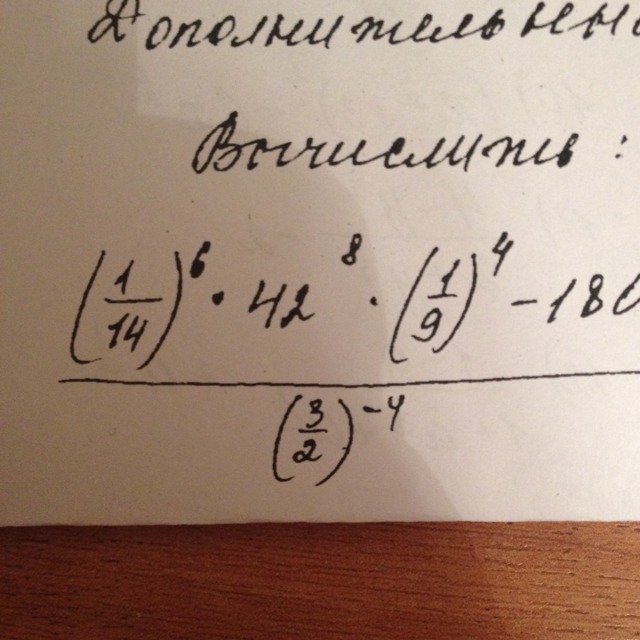 Дополнительно
Вычислить :
(1/14)^6 · 42^8 · (1/9)^4 - 180
(3/2)^-4